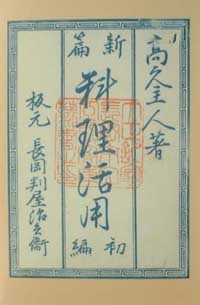 高久主人著
新篇
料理活用
初編
板元
長岡判屋治兵衞